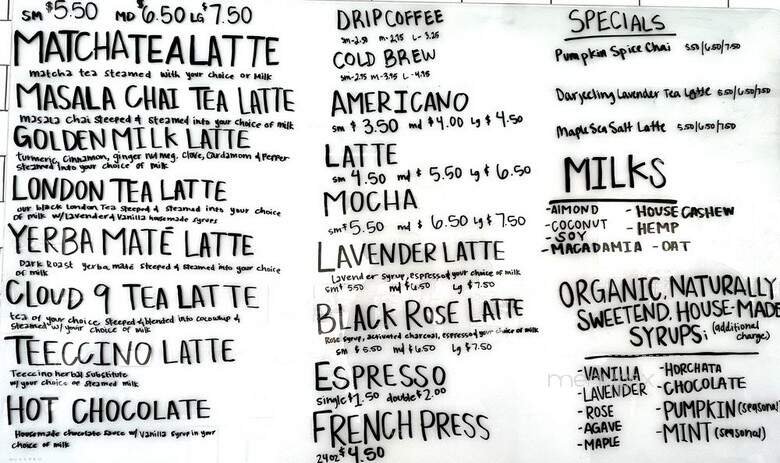 SM $5.50 MD $6.50 LG $7.50
MATCHA TEA LATTE
matcha tea steamed with your choice or milk
MASALA CHAI TEA LATTE
masala chai steeped & steamed into your choice of milk
GOLDEN MILK LATTE
turmeric, cinnamon, ginger nutmeg, clove, cardamom & pepper
steamed into your choice of milk
LONDON TEA LATTE
our black London Tea steeped & steamed into your choice
of milk w/lavender & vanilla housemade syrups
YERBA MATÉ LATTE
Dark Roast yerba maté steeped & steamed into your choice
of milk
CLOUD 9 TEA LATTE
tea of your choice, steeped & blended into
steamed w/ your choice of milk
TEECCINO LATTE
Teeccino herbal substitute
w/ your choice of steamed milk
HOT CHOCOLATE
Housemade chocolate sauce w/ vanilla syrup in your
choice of milk
DRIP COFFEE
m-2.75 L-3.25
COLD BREW
sm-2.75 m-3.75 L-4.75
AMERICANO
sm $3.50 md $4.00 lg $4.50
LATTE
sm 4.50 md $5.50 lg $6.50
MOCHA
sm $5.50 md $6.50 lg $7.50
LAVENDER LATTE
lavender syrup, espresso & your choice of milk
sm $5.50 md $6.50 lg $7.50
BLACK ROSE LATTE
Rose syrup, activated charcoal, espresso & your choice of milk
sm $5.50 md $6.50 Lg $7.50
ESPRESSO
single $1.50 double $2.00
FRENCH PRESS
24oz $4.50
SPECIALS
Pumpkin Spice Chai 5.50/6.50/7.50
Darjeeling Lavender Tea Latte 5.50/6.50/7.50
Maple Sea Salt Latte 5.50/6.50/7.50
MILKS
-ALMOND - HOUSE CASHEW
-COCONUT - HEMP
-SOY
-MACADAMIA - OAT
ORGANIC, NATURALLY
SWEETEND, HOUSE-MADE
SYRUPS: (additional
charge)
-VANILLA -HORCHATA
-LAVENDER -CHOCOLATE
-ROSE -PUMPKIN (seasonal)
-AGAVE -MINT (seasonal)
-MAPLE